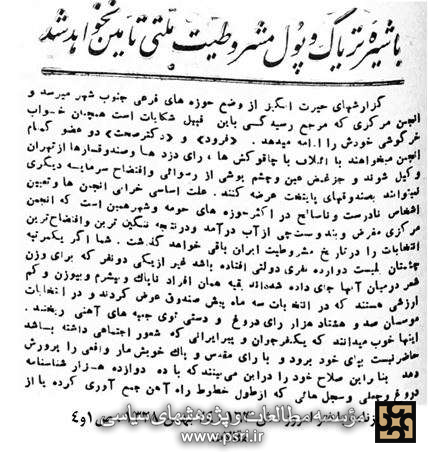 با شیره تریاک و پول مشروطیت ملتی تأمین نخواهد شد
گزارشهای حیرت انگیز از وضع حوزه های فرعی جنوب شهر میرسد و
انجمن مرکزی که مرجع رسیدگی باین قبیل شکایات است همچنان خواب
خرگوشی خودش را ادامه میدهد. «فرود» و «دکتر صحت» دو عضو کدام
انجمن میخواهند با ائتلاف با چاقوکش ها، رای دزد ها و صندوقسازها از تهران
وکیل شوند و جز غمض عین و چشم پوشی از رسوائی و افتضاح سرمایه دیگری
نمیتوانند بصندوقهای پایتخت عرضه کنند. علت اساسی خرابی انجمن ها و تعیین
اشخاص نادرست و ناصالح در اکثر حوزه های حومه و شهر همین است که انجمن
مرکزی مغرض و بندوبست چی از آب درآمد و درنتیجه ننگین ترین و افتضاح ترین
انتخابات را در تاریخ مشروطیت ایران باقی خواهد گذشت. شما اگر یکمرتبه
چشمتان بلیست دوازده نفری دولتی افتاده باشد غیر از یکی دو نفر که برای وزن
شعر در میان آنها جای داده شده‌اند بقیه همان افراد ناپاک و بیشرم و بیوزن و کم
ارزشی هستند که در انتخابات سه ماه پیش صندوق عوض کردند و در انتخابات
موسسان صد و هشتاد هزار رای دروغ و دستی توی جعبه های آهنی ریختند.
اینها خوب میدانند که یکنفر جوان و پیر ایرانی که شعور اجتماعی داشته باشد
حاضر نیست بپای خود برود و با رای مقدس و پاک خویش مار واقعی را پرورش
دهد بنابراین صلاح خود را در این می‌بینند که با ده دوازده هزار شناسنامه
دروغ و جعلی و سجل هائی که از طول خطوط راه آهن جمع آوری کرده باز
موسسه مطالعات و پژوهشهای سیاسی
www.psri.ir
ص ۱ و ۴